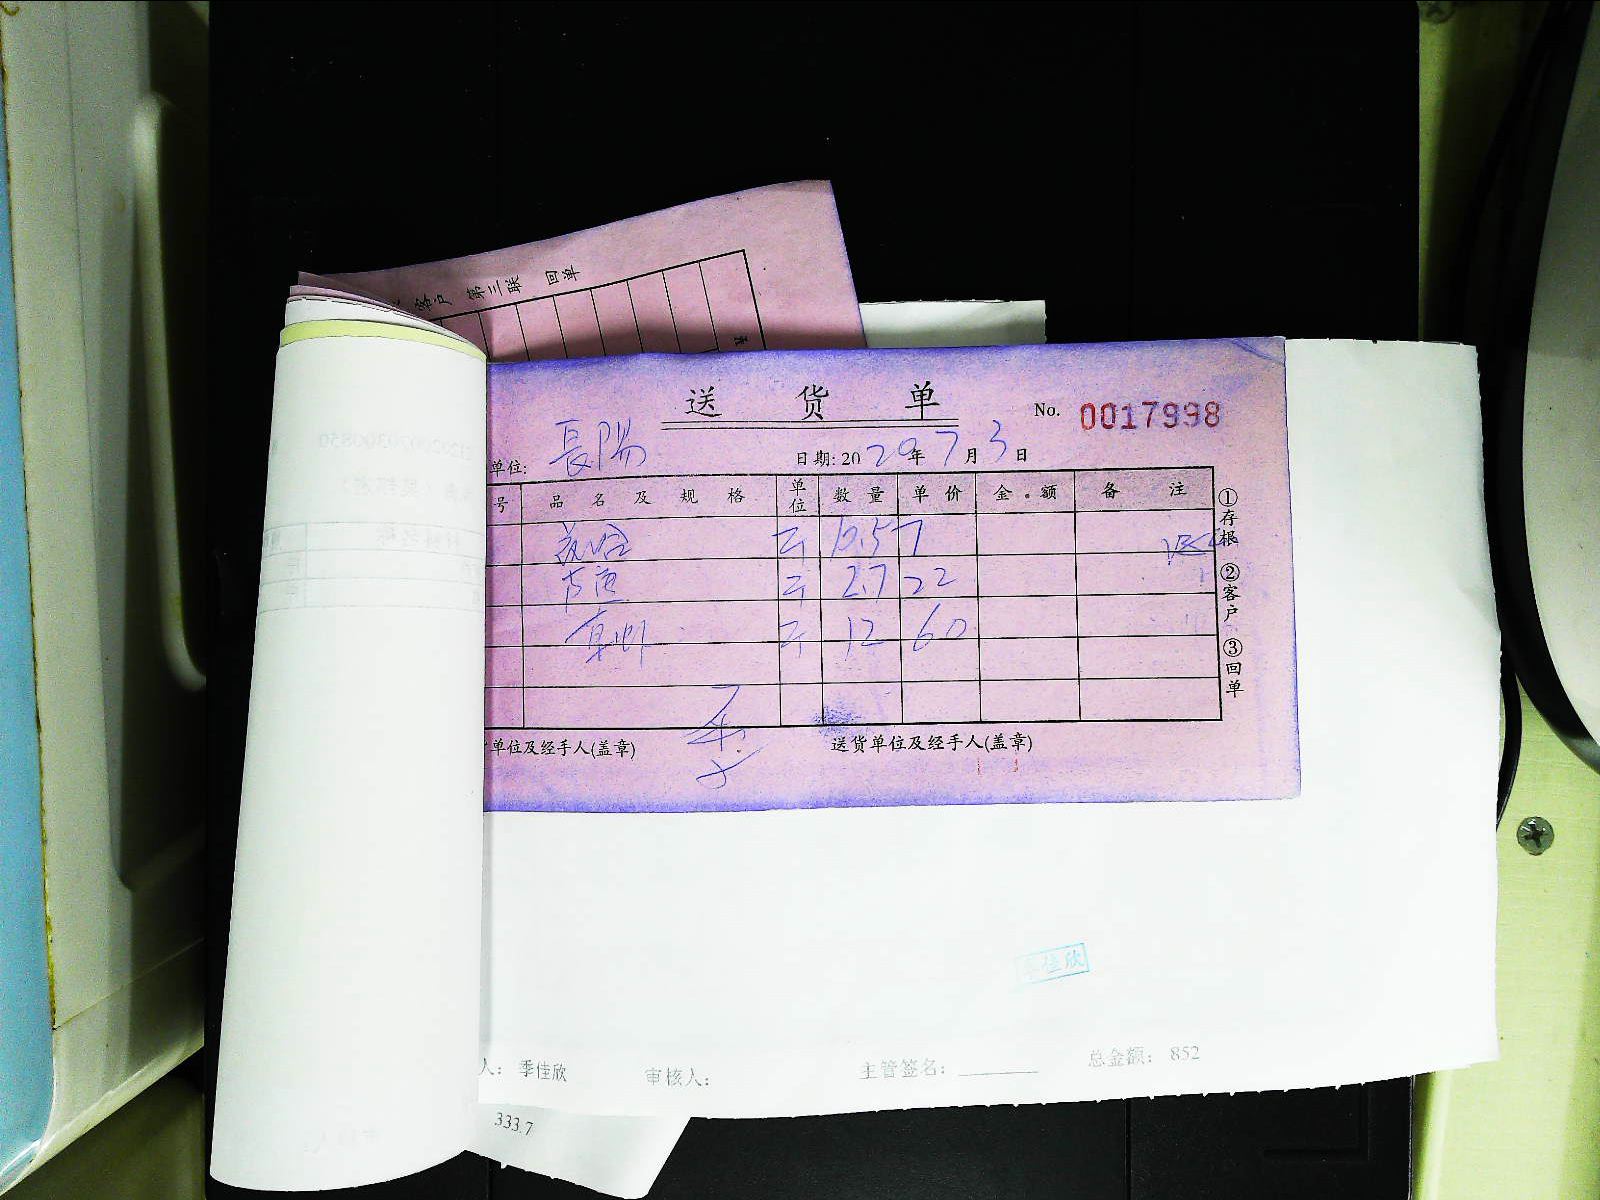 客户 第三联 回单
送 货 单 No. 0017998
单位: 長陽 日期: 2020年7月3日
号 品名及规格 单位 数量 单价 金额 备注
花蛤 斤 10.5 7
斤 2.7 22
斤 12 60
①存根 ②客户 ③回单
单位及经手人(盖章) 送货单位及经手人(盖章)
季佳欣
人: 季佳欣 审核人: 主管签名: 总金额: 852
333.7